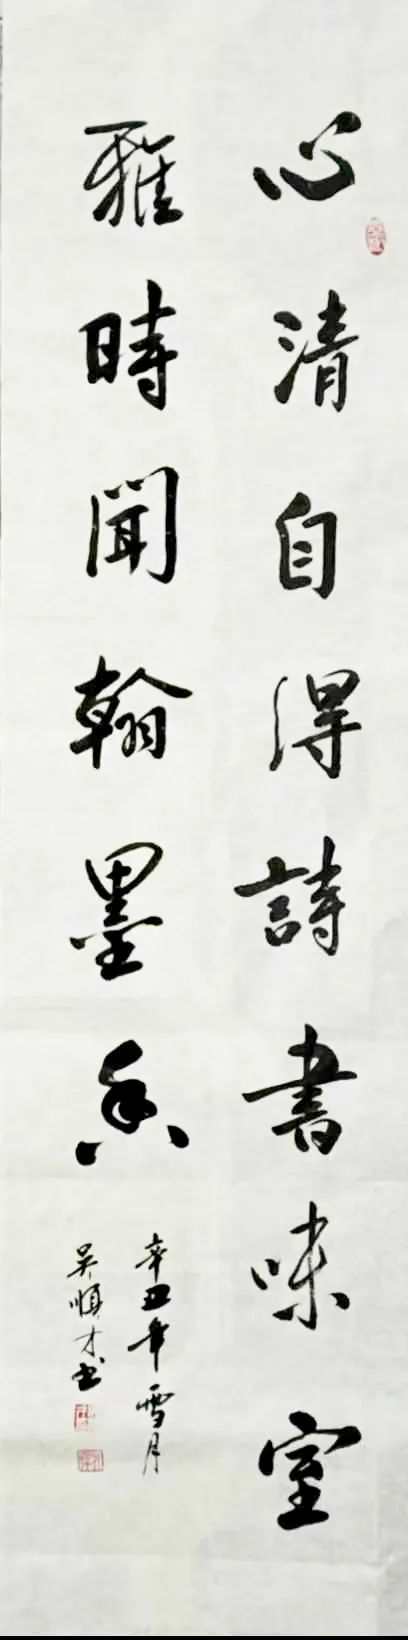 心清自得詩書味室
雅時聞翰墨香
辛丑年雪月
吴順才书